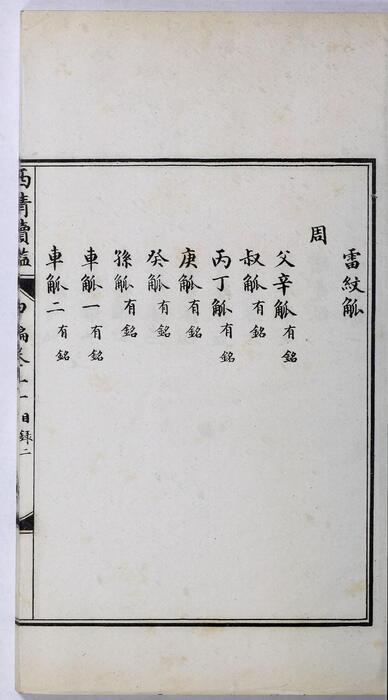 雷紋觚
周
父辛觚有銘
叔觚有銘
丙丁觚有銘
庚觚有銘
癸觚有銘
孫觚有銘
車觚一有銘
車觚二有銘
西清續鑑
目録二